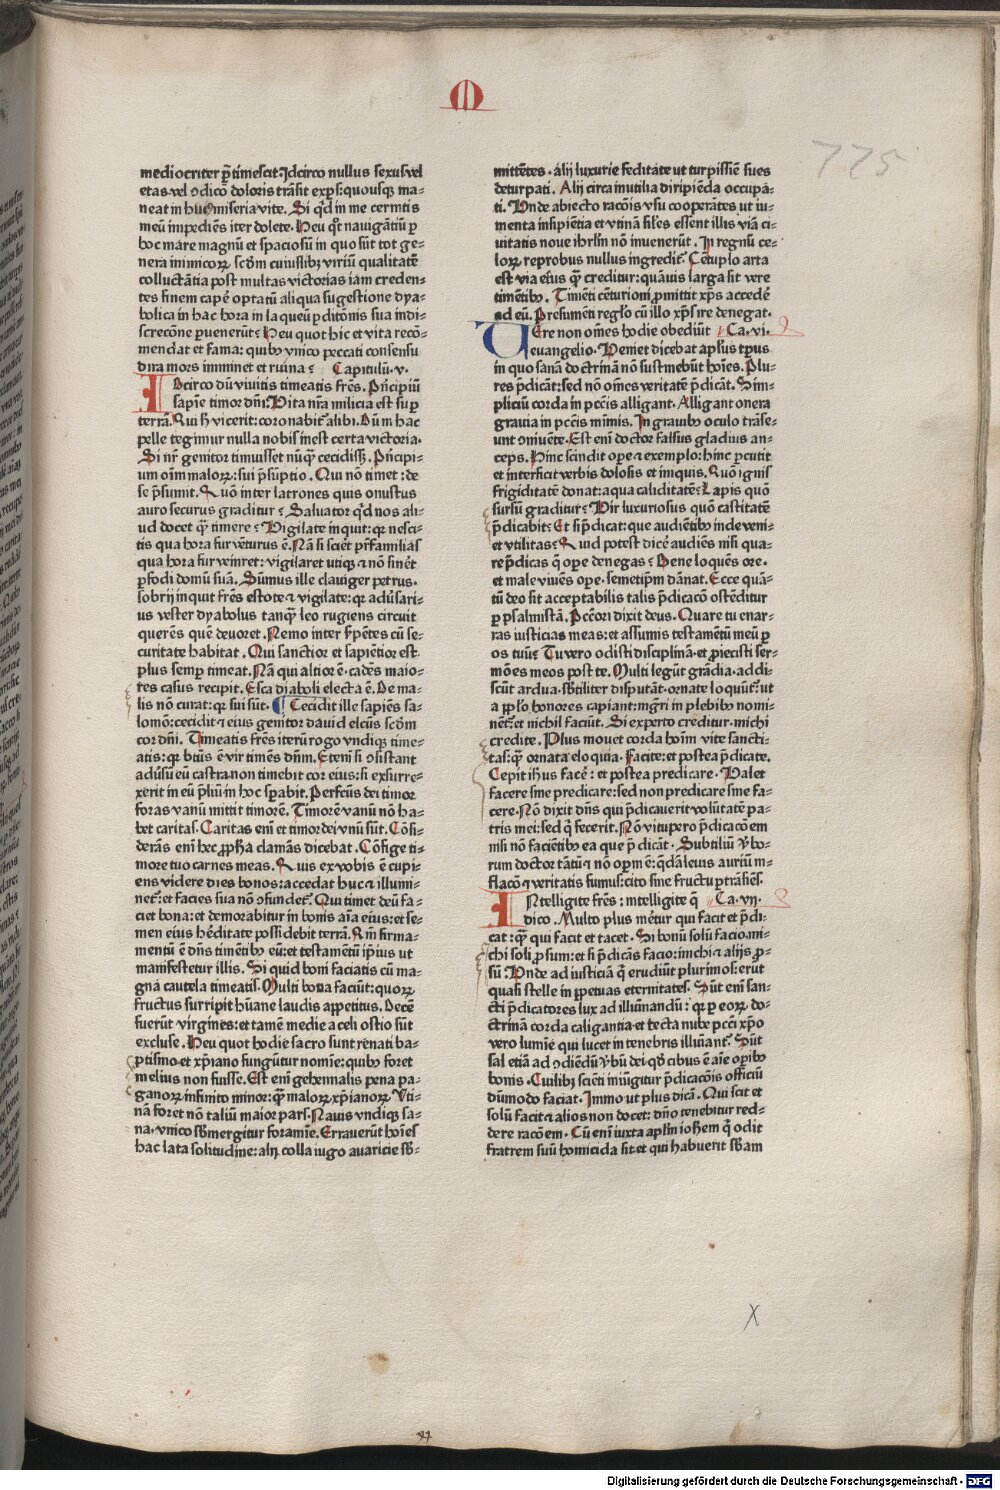 M
775
mediocriter p̄timescit. Idcirco nullus sexus vel
etas vel ↄdicō doloris trāsit expers: quousqꝫ ma-
neat in huiꝰ miseria vite. Si qd̓ in me cernitis
meū impediēs iter dolete. Heu qt̓ nauigātiū ꝑ
hoc mare magnū et spaciosū in quo sūt tot ge-
nera inimicoꝝ scd̓m cuiuslibꝫ viriū qualitatē
colluctātia post multas victorias iam creden-
tes finem capē optatū aliqua sugestione dya-
bolica in hac hora in laqueū ꝑditōnis sua indi-
screcōne ꝑuenerūt: Heu quot hic et vita recō-
mendat et fama: quibꝰ vnico peccati consensu
dira mors imminet et ruina: Capitulū. v.
Idcirco dū viuitis timeatis fr̄es. Pn̄cipiū
sapiēe timor dn̄i: Vita nr̄a milicia est suꝑ
terrā. Qui hic vicerit: coronabit̓ alibi. Dū m hac
pelle tegimur nulla nobis inest certa victoria.
Si nr̄ genitor timuisset nūq̄ cecidisꝫ. Pn̄cipi-
um oīm maloꝝ: sui p̄sūptio. Qui nō timet: de
se p̄sumit. Quō inter latrones quis onustus
auro securus graditur: Saluator qd̓ nos ali-
ud docet q̄ timere: Vigilate inquit: qꝛ nesci-
tis qua hora fur vēturus ē. Nā si sciet̓ pr̄familias
qua hora fur veniret: vigilaret vtiqꝫ ⁊ nō sinēt
ꝑfodi domū suā. Sūmus ille clauiger petrus.
sobrij inquit fr̄es estote ⁊ vigilate: qꝛ adūsari-
us vester dyabolus tanqꝫ leo rugiens circuit
querēs quē deuoret. Nemo inter s̓pētes cū se-
curitate habitat. Qui sanctior et sapiētior est
plus semꝑ timeat. Nā qui altior ē. cadēs maio-
res casus recipit. Esca diaboli electa ē. De ma-
lis nō curat: qꝛ sui sūt. Cecidit ille sapiēs sa-
lomō: cecidit ⁊ eius genitor dauid elcūs scd̓m
cor dn̄i. Timeatis fr̄es iterū rogo vndiqꝫ time-
atis: qꝛ btūs ē vir timēs dn̄m. Etenī si ↄsistant
adūsū eū castra: non timebit cor eius: si exsurre-
xerit in eū p̄liū in hoc sꝑabit. Perfcūs dei timor
foras vanū mittit timorē. Timorē vanū nō ha-
bet caritas. Caritas enī et timor dei vnū sūt. Cōsi-
derās enī hec ꝓph̄a clamās dicebat. Cōfige ti-
more tuo carnes meas. Quis ex vobis ē cupi-
ens videre dies bonos: accedat huc ⁊ illumi-
net̓: et facies sua nō ↄfundet̓. Qui timet deū fa-
ciet bona: et demorabitur in bonis aīa eius: et se-
men eius he̓ditate possidebit terrā. Qm̄ firma-
mentū ē dn̄s timētibꝰ eū: et testamētū ip̄ius vt
manifestetur illis. Si quid boni faciatis cū ma-
gna cautela timeatis. Multi bona faciūt: quoꝝ
fructus surripit hūane laudis appetitus. Decē
fuerūt virgines: et tamē medie a celi ostio sūt
excluse. Heu quot hodie sacro sunt renati ba-
ptismo et xp̄iano fungūtur nomīe: quibꝰ foret
melius non fuisse. Est enī gehennalis pena pa-
ganoꝝ infinito minor: q̄ maloꝝ xp̄ianoꝝ. Vti-
nā foret nō taliū maior pars. Nauis vndiqꝫ sa-
na. vnico sb̄mergitur foramīe. Errauerūt hoīes
hac lata solitudine: alij colla iugo auaricie sb̄-
mittētes. alij luxurie feditate vt turpissīe sues
deturpati. Alij circa inutilia diripiēda occupā-
ti. Vnde abiecto racōis vsu cooperātes vt iu-
menta insipiētia et vtinā siles essent illis viā ci-
uitatis noue ihrl̄m nō inuenerūt. In regnū ce-
loꝝ reprobus nullus ingredit̓. Cētuplo arta
est via eius q̄ creditur: quāuis larga sit vere
timētibꝰ. Timēti cēturioni ꝓmittit xp̄s accedē
ad eū. Presumēti regl̓o cū illo xp̄s ire denegat.
Vere non om̄es hodie obediūt Ca. vi.
euangelio. Veniet dicebat apl̓us tp̄us
in quo sanā doctrinā nō sustinebūt hoīes. Plu-
res p̄dicāt: sed nō om̄es veritatē p̄dicāt. Sim-
pliciū corda in pctīs alligant. Alligant onera
grauia in pctīs mīmis. In grauibꝰ oculo trāse-
unt ↄniuēte. Est enī doctor falsus gladius an-
ceps. Hinc scindit ope ⁊ exemplo: hinc ꝑcutit
et interficit verbis dolosis et iniquis. Quō ignis
frigiditatē donat: aqua caliditatē: Lapis quō
sursū graditur: Vir luxuriosus quō castitatē
p̄dicabit: Et si p̄dicat: que audiētibꝰ inde veni-
et vtilitas: Quid potest dicē audiēs nisi qua-
re p̄dicas q̄ ope denegas: Bene loquēs ore.
et male viuēs ope. semetip̄m dānat. Ecce quā-
tū deo sit acceptabilis talis p̄dicacō ostēditur
ꝑ psalmistā. Pctōri dixit deus. Quare tu enar-
ras iusticias meas: et assumis testamētū meū ꝑ
os tuū: Tu vero odisti disciplinā. et ꝓiecisti ser-
mōes meos post te. Multi legūt grādia. addi-
scūt ardua. sb̄tiliter disputāt. ornate loquūt̓: vt
a pp̄lo honores capiant: mgr̄i in plebibꝰ nomi-
nēt̓: et nichil faciūt. Si experto creditur. michi
credite. Plus mouet corda hoīm vite sancti-
tas: q̄ ornata eloquia. Facite: et postea p̄dicate.
Cepit ih̄us facē: et postea predicare. Valet
facere sine predicare: sed non predicare sine fa-
cere. Nō dixit dn̄s qui p̄dicauerit volūtatē pa-
tris mei: sed q̄ fecerit. Nō vitupero p̄dicacōem
nisi nō faciētibꝰ ea que p̄dicāt. Subtiliū v̓bo-
rum doctor tātū ⁊ nō opm̄ ē: qd̓ā leuis auriū in-
flacō ⁊ veritatis fumus: cito sine fructu ꝑtrāsiēs.
Intelligite fr̄es: intelligite q̄ Ca. vij.
dico. Multo plus mēt̓ur qui facit et p̄di-
cat: q̄ qui facit et tacet. Si bonū solū facio. mi-
chi soli ꝓsum: et si p̄dicās facio: michi ⁊ alijs ꝓ-
sū: Vnde ad iusticiā q̄ erudiūt plurimos: erūt
quasi stelle in ꝑpetuas eternitates. Sūt enī san-
cti p̄dicatores lux ad illūinandū: qꝛ ꝑ eoꝝ do-
ctrinā corda caligantia et tecta nube pctī xp̄o
vero lumīe qui lucet in tenebris illūināt̓. Sūt
sal etiā ad ↄdiēdū v̓bū dei. qd̓ cibus ē aīe opibꝰ
bonis. Cuilibꝫ sciēti iniūgitur p̄dicacōis officiū
dūmodo faciat. Immo vt plus dicā. Qui scit et
solū facit ⁊ alios non docet: dn̄o tenebitur red-
dere racōem. Cū enī iuxta apl̓m ioh̄em q̄ odit
fratrem suū homicida sit. et qui habuerit sb̄am
x
Digitalisierung gefördert durch die Deutsche Forschungsgemeinschaft - DFG